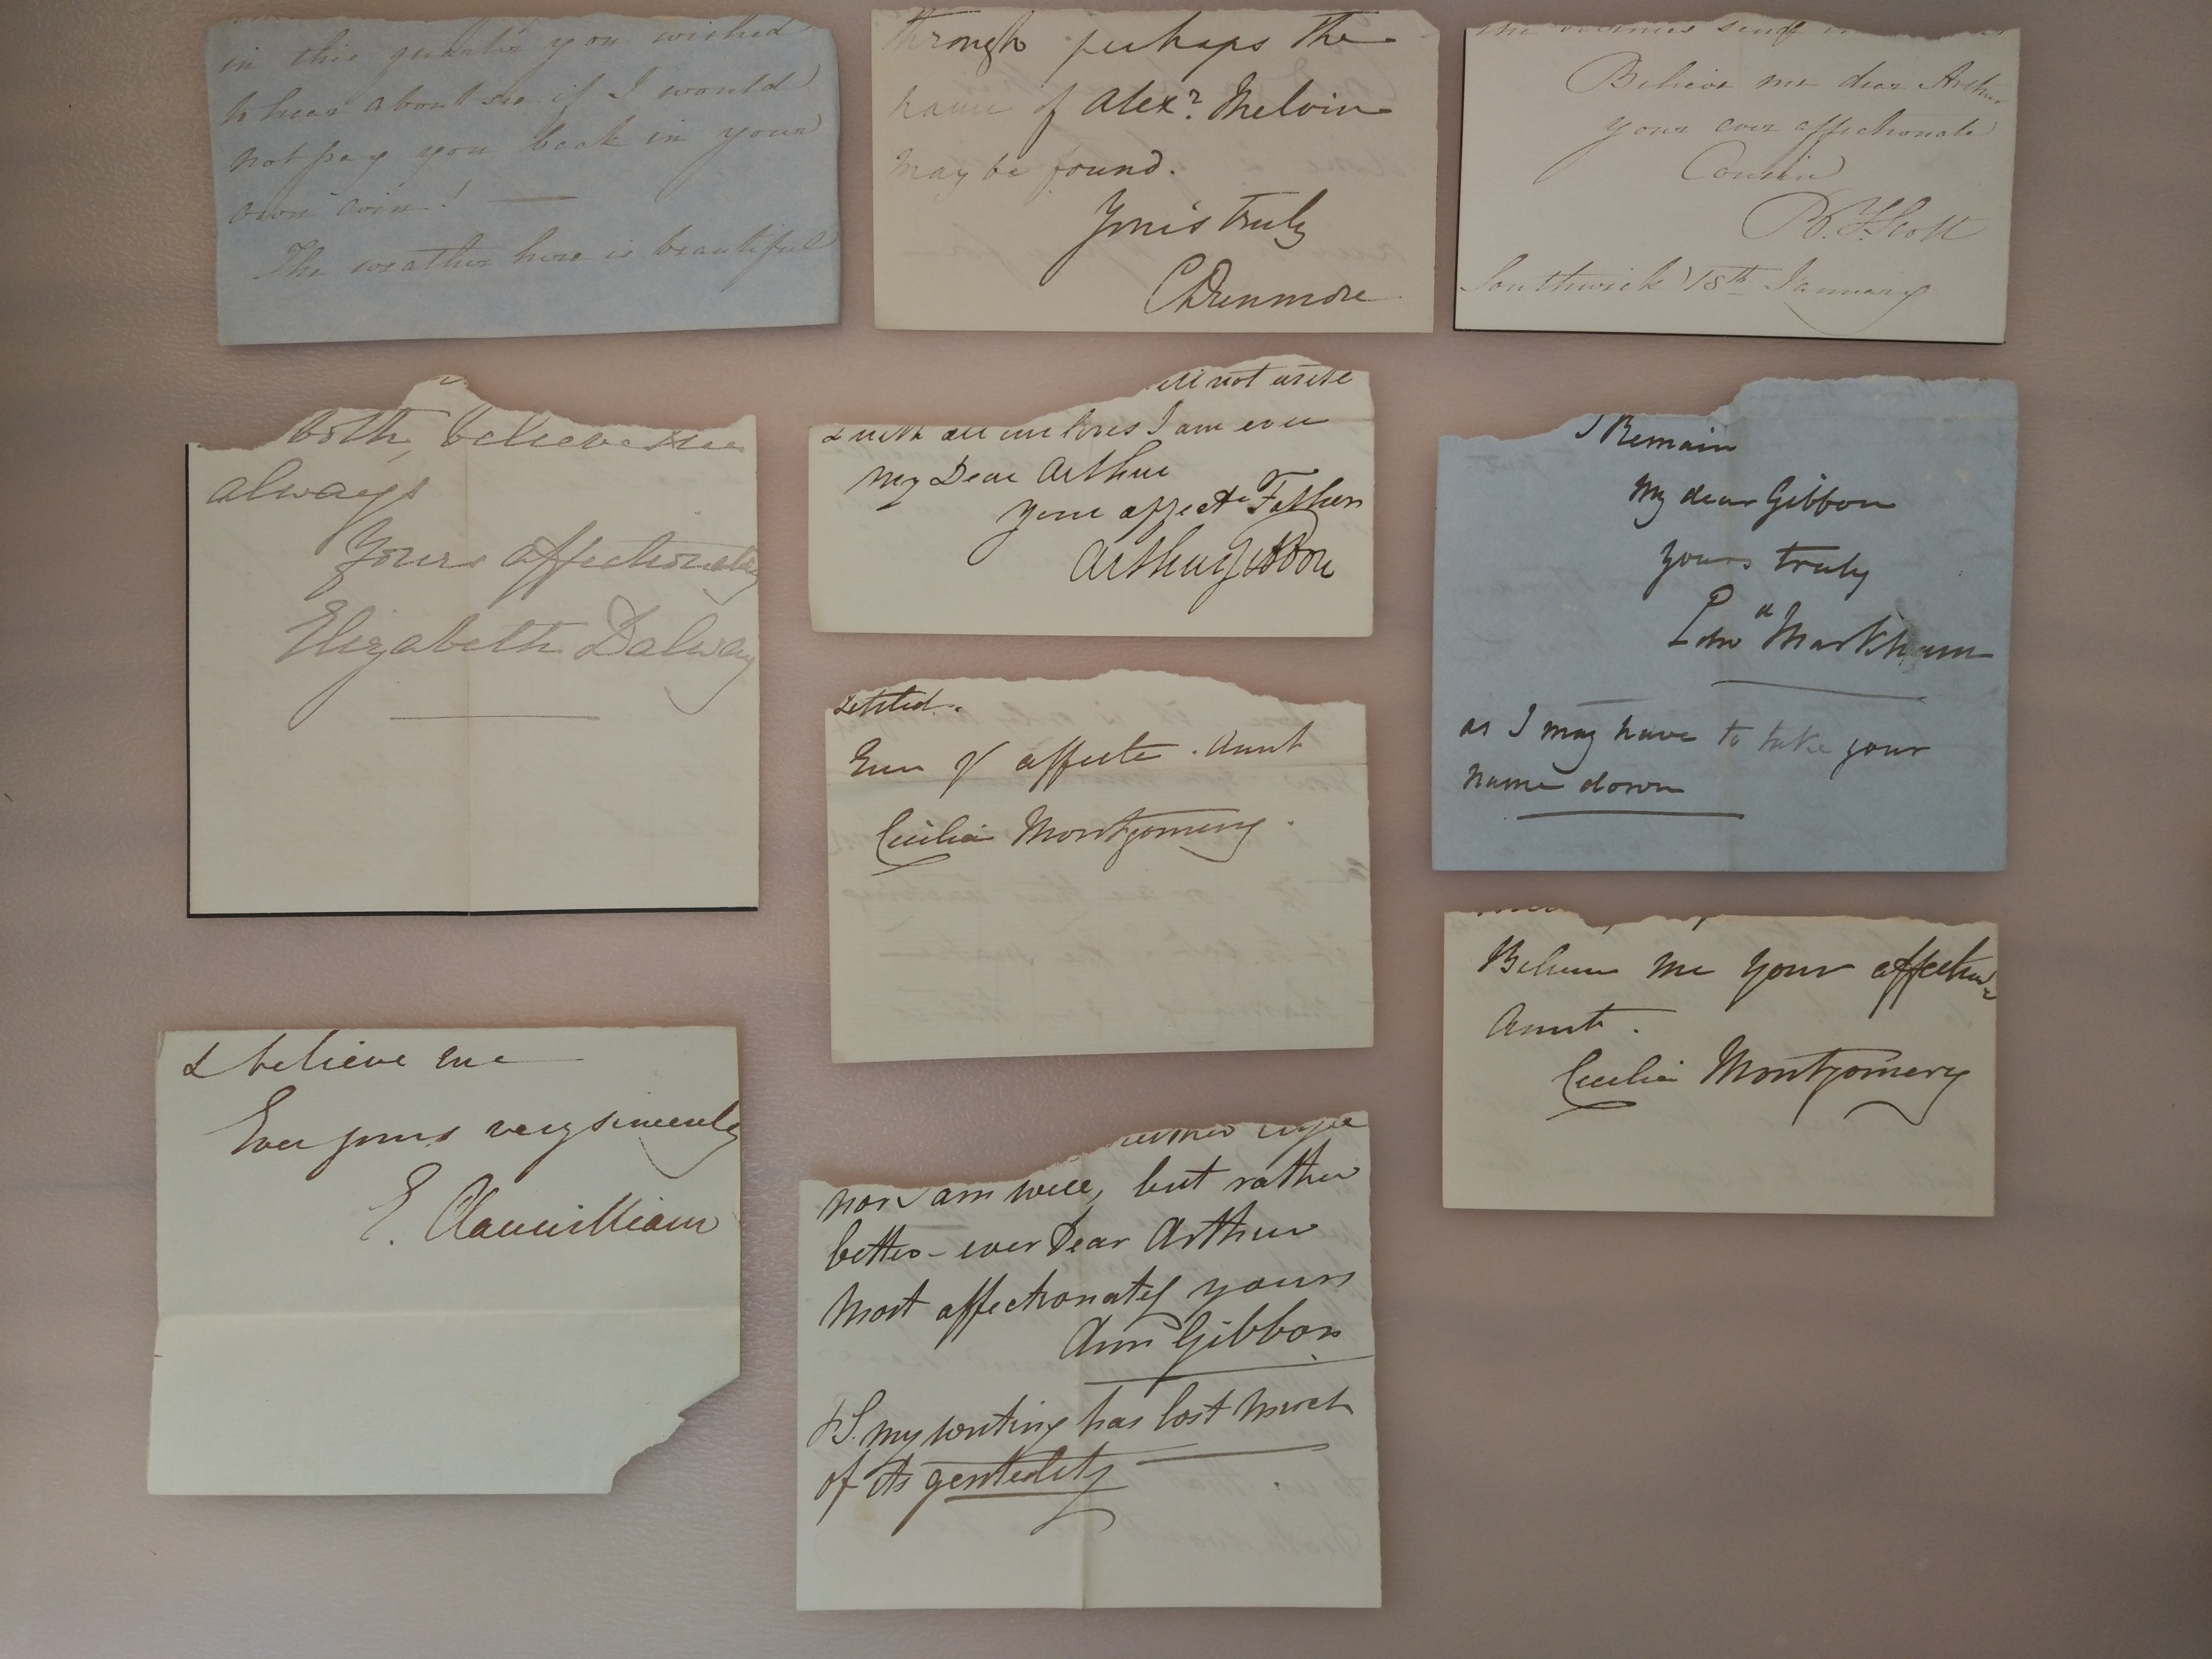 in this quarter you wished
to hear about me if I would
not pay you back in your
own coin! —
The weather here is beautiful
through perhaps the
name of Alexr. Melvin
may be found.
Yours truly
CDunmore
Believe me dear Arthur
your ever affectionate
Cousin
R. T. Scott
Southwick 18th January
both, believe me
always
Yours affectionately
Elizabeth Dalway
not write
& with all our loves I am ever
My Dear Arthur
your affecte Father
Arthur Gibbon
I Remain
My dear Gibbon
yours truly
Edwd Markham
as I may have to take your
name down
settled.
Ever yr affecte. Aunt
Cecilia Montgomery.
Believe me your affecte
Aunt.
Cecilia Montgomery
& believe me
Ever yours very sincerely
E. Clanwilliam
nor am well, but rather
better - ever Dear Arthur
Most affectionately yours
Ann Gibbon
PS. my writing has lost much
of its gentility